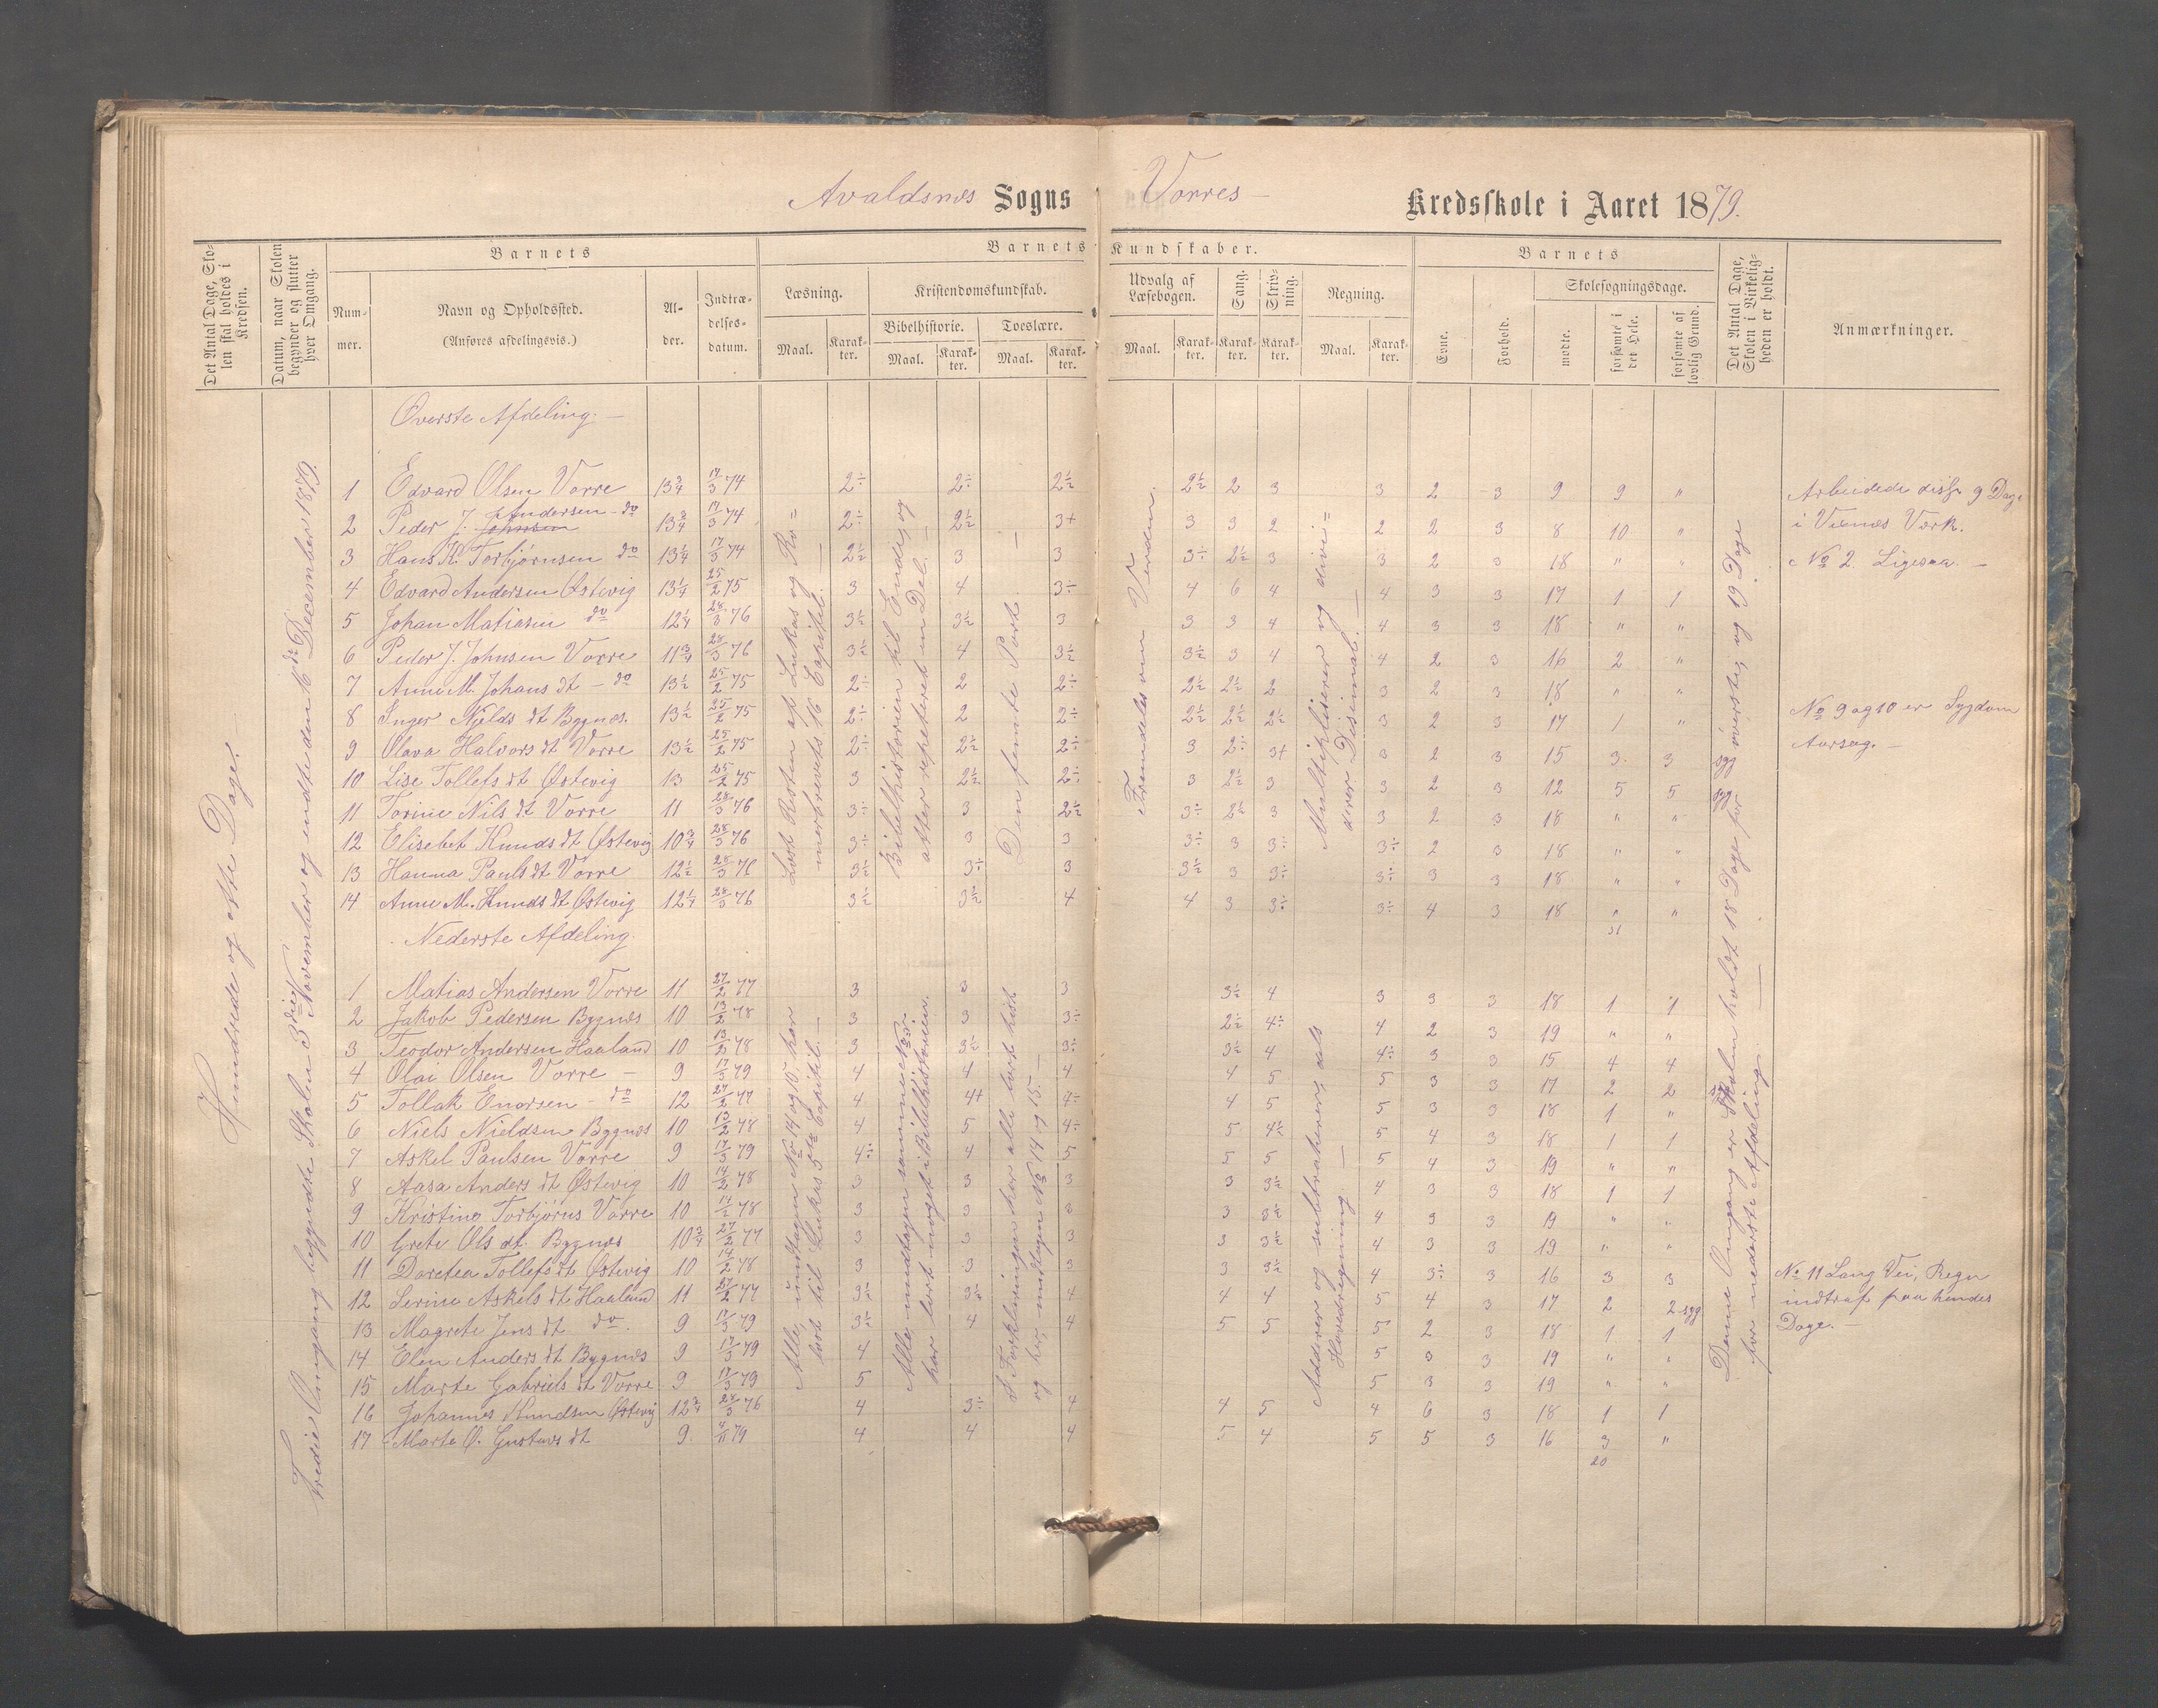 Avaldsnes Sogns Vorres – Kredsskole i Aaret 1879.
Det Antal Dage, Skolen skal holdes i Kredsen.
Datum, naar Skolen begynder og slutter hver Omgang.
Barnets
Nummer.
Navn og Opholdssted.
(Anføres afdelingsvis.)
Alder.
Indtrædelsesdatum.
Barnets Kundskaber.
Læsning.
Maal.
Karakter.
Kristendomskundskab.
Bibelhistorie.
Maal.
Karakter.
Troeslære.
Maal.
Karakter.
Udvalg af Læsebogen.
Maal.
Karakter.
Sang.
Karakter.
Skrivning.
Karakter.
Regning.
Maal.
Karakter.
Barnets
Evne.
Forhold.
Skolesøgningsdage.
mødte.
forsømte i det Hele.
forsømte af lovlig Grund.
Det Antal Dage, Skolen i Virkeligheden er holdt.
Anmærkninger.
Hundrede og otte Dage.
Tredie Omgang begyndte Skolen 3die November og endte den 16de December 1879.
Øverste Afdeling. –
1 Edvard Olsen Vorre 13 3/4 17/3 74 2÷ 2÷ 2½ 2½ 2 3 3 2 3 9 9 "
2 Peder J. Johnsen Andersen – do 13 3/4 17/3 74 2÷ 2½ 3+ 3 3 2 2 2 3 8 10 "
3 Hans K. Torbjørnsen do 13 1/4 17/3 74 2½ 3 3 3÷ 2½ 3 3 2 3 18 " "
4 Edvard Andersen Østevig 13 1/4 25/2 75 3 4 3÷ 4 6 4 4 3 3 17 1 1
5 Johan Matiasen do 12 1/4 28/3 76 3½ 3½ 3 3 3 4 4 3 3 18 " "
6 Peder J. Johnsen Vorre 11 3/4 28/3 76 3½ 4 3½ 3½ 3 4 4 2 3 16 2 "
7 Anne M. Johans dt – do 13 ½ 25/2 75 2÷ 2 2÷ 2½ 2½ 2 3 2 3 18 " "
8 Inger Njelds dt Bygnæs. 13 ½ 25/2 75 2÷ 2 2÷ 2½ 2½ 2½ 3 2 3 17 1 "
9 Olava Halvors dt Vorre 13 ½ 25/2 75 2÷ 2½ 2÷ 3 2÷ 3+ 3 2 3 15 3 3 syg
10 Lise Tollefs dt Østevig 13 25/2 75 3 2½ 2÷ 3 2½ 3 3 2 3 12 5 5 syg
11 Torine Nils dt Vorre 11 28/3 76 3÷ 3 2½ 3÷ 2½ 3 3 2 3 18 " "
12 Elisebet Knuds dt Østevig 10 3/4 28/3 76 3÷ 3 3 3÷ 3 3÷ 3÷ 2 3 18 " "
13 Hanna Pauls dt Vorre 12 ½ 28/3 76 3½ 3÷ 3 3½ 3 3÷ 3÷ 3 3 18 " "
14 Anne M. Knuds dt Østevig 12 1/4 28/3 76 3½ 3½ 4 4 3 3÷ 3÷ 4 3 18 " "
31
Læst Resten af Lukas og Romerbrevets 16 Capitel. –
Bibelhistorien til Ende, og atter repeteret en Del. –
Den femte Part. –
Fremdeles om Verden.
Multipliserer og dividerer Desimal. –
Arbeidede disse 9 Dage
i Visnæs Værk.
No 2. Ligesaa. –
No 9 og 10 er Sygdom
Aarsag. –
Nederste Afdeling.
1 Matias Andersen Vorre 11 27/2 77 3 3 3 3½ 4 3 3 3 18 1 1
2 Jakob Pedersen Bygnæs 10 13/2 78 3 3 3÷ 2½ 4÷ 4 2 3 19 " "
3 Teodor Andersen Haaland 10 13/2 78 3 3½ 3÷ 3½ 4 4÷ 3 3 15 4 4
4 Olai Olsen Vorre – 9 17/3 79 4 4 4 4 5 5 3 3 17 2 2
5 Tollak Enorsen – do 12 27/2 77 4 4+ 4÷ 4 5 5 3 3 18 1 "
6 Niels Nieldsen Bygnæs 10 13/2 78 4 5 4÷ 5 4½ 5 4 3 18 1 1
7 Askel Paulsen Vorre 9 17/3 79 4÷ 4 5 5 5 5 4 3 19 " "
8 Aasa Anders dt Østevig 10 14/2 78 3 3 3 3 3½ 4 3 3 18 1 1
9 Kristina Torbjørns Vorre 10 14/2 78 3 3 3 3 3½ 4 3 3 19 " "
10 Grete Ols dt. Bygnæs 10 3/4 27/2 77 3 3 3 3 3½ 4 3 3 19 " "
11 Doretea Tollefs dt Østevig 10 14/2 78 3 3 3 3 3½ 4 3÷ 3 16 3 3
12 Serine Askels dt Haaland 11 27/2 77 3½ 3½ 4 4 4 5 4 3 17 2 2 syg
13 Magrete Jens dt do. 9 17/3 79 3½ 4 4 5 5 5 2 3 18 1 1
14 Elen Anders dt Bygnæs 9 17/3 79 4 5 3 3 19 " "
15 Marte Gabriels dt Vorre 9 17/3 79 5 5 3 3 19 " "
16 Johannes Knudsen Østevig 12 3/4 28/3 76 4 3÷ 4 4 5 4 6 3 18 1 1
17 Marte O. Gustavs dt 9 4/11 79 4 4 4 5 4 5 5 3 16 3 "
20
Alle, undtagen No 14 og 15 har læst til Lukas 5te Capitel. –
Alle, undtagen samme No. har lært noget i Bibelhistorien.
I Forklaringen har alle lært lidt og her, undtagen No 14 og 15. –
Adderer og subtraherer, dels Hovedregning –
Denne Omgang er Skolen holdt 18 Dage for øverste, og 19 Dage for nederste Afdeling –
No 11 Lang Vei, Regn
indtraf paa hendes
Dage. –